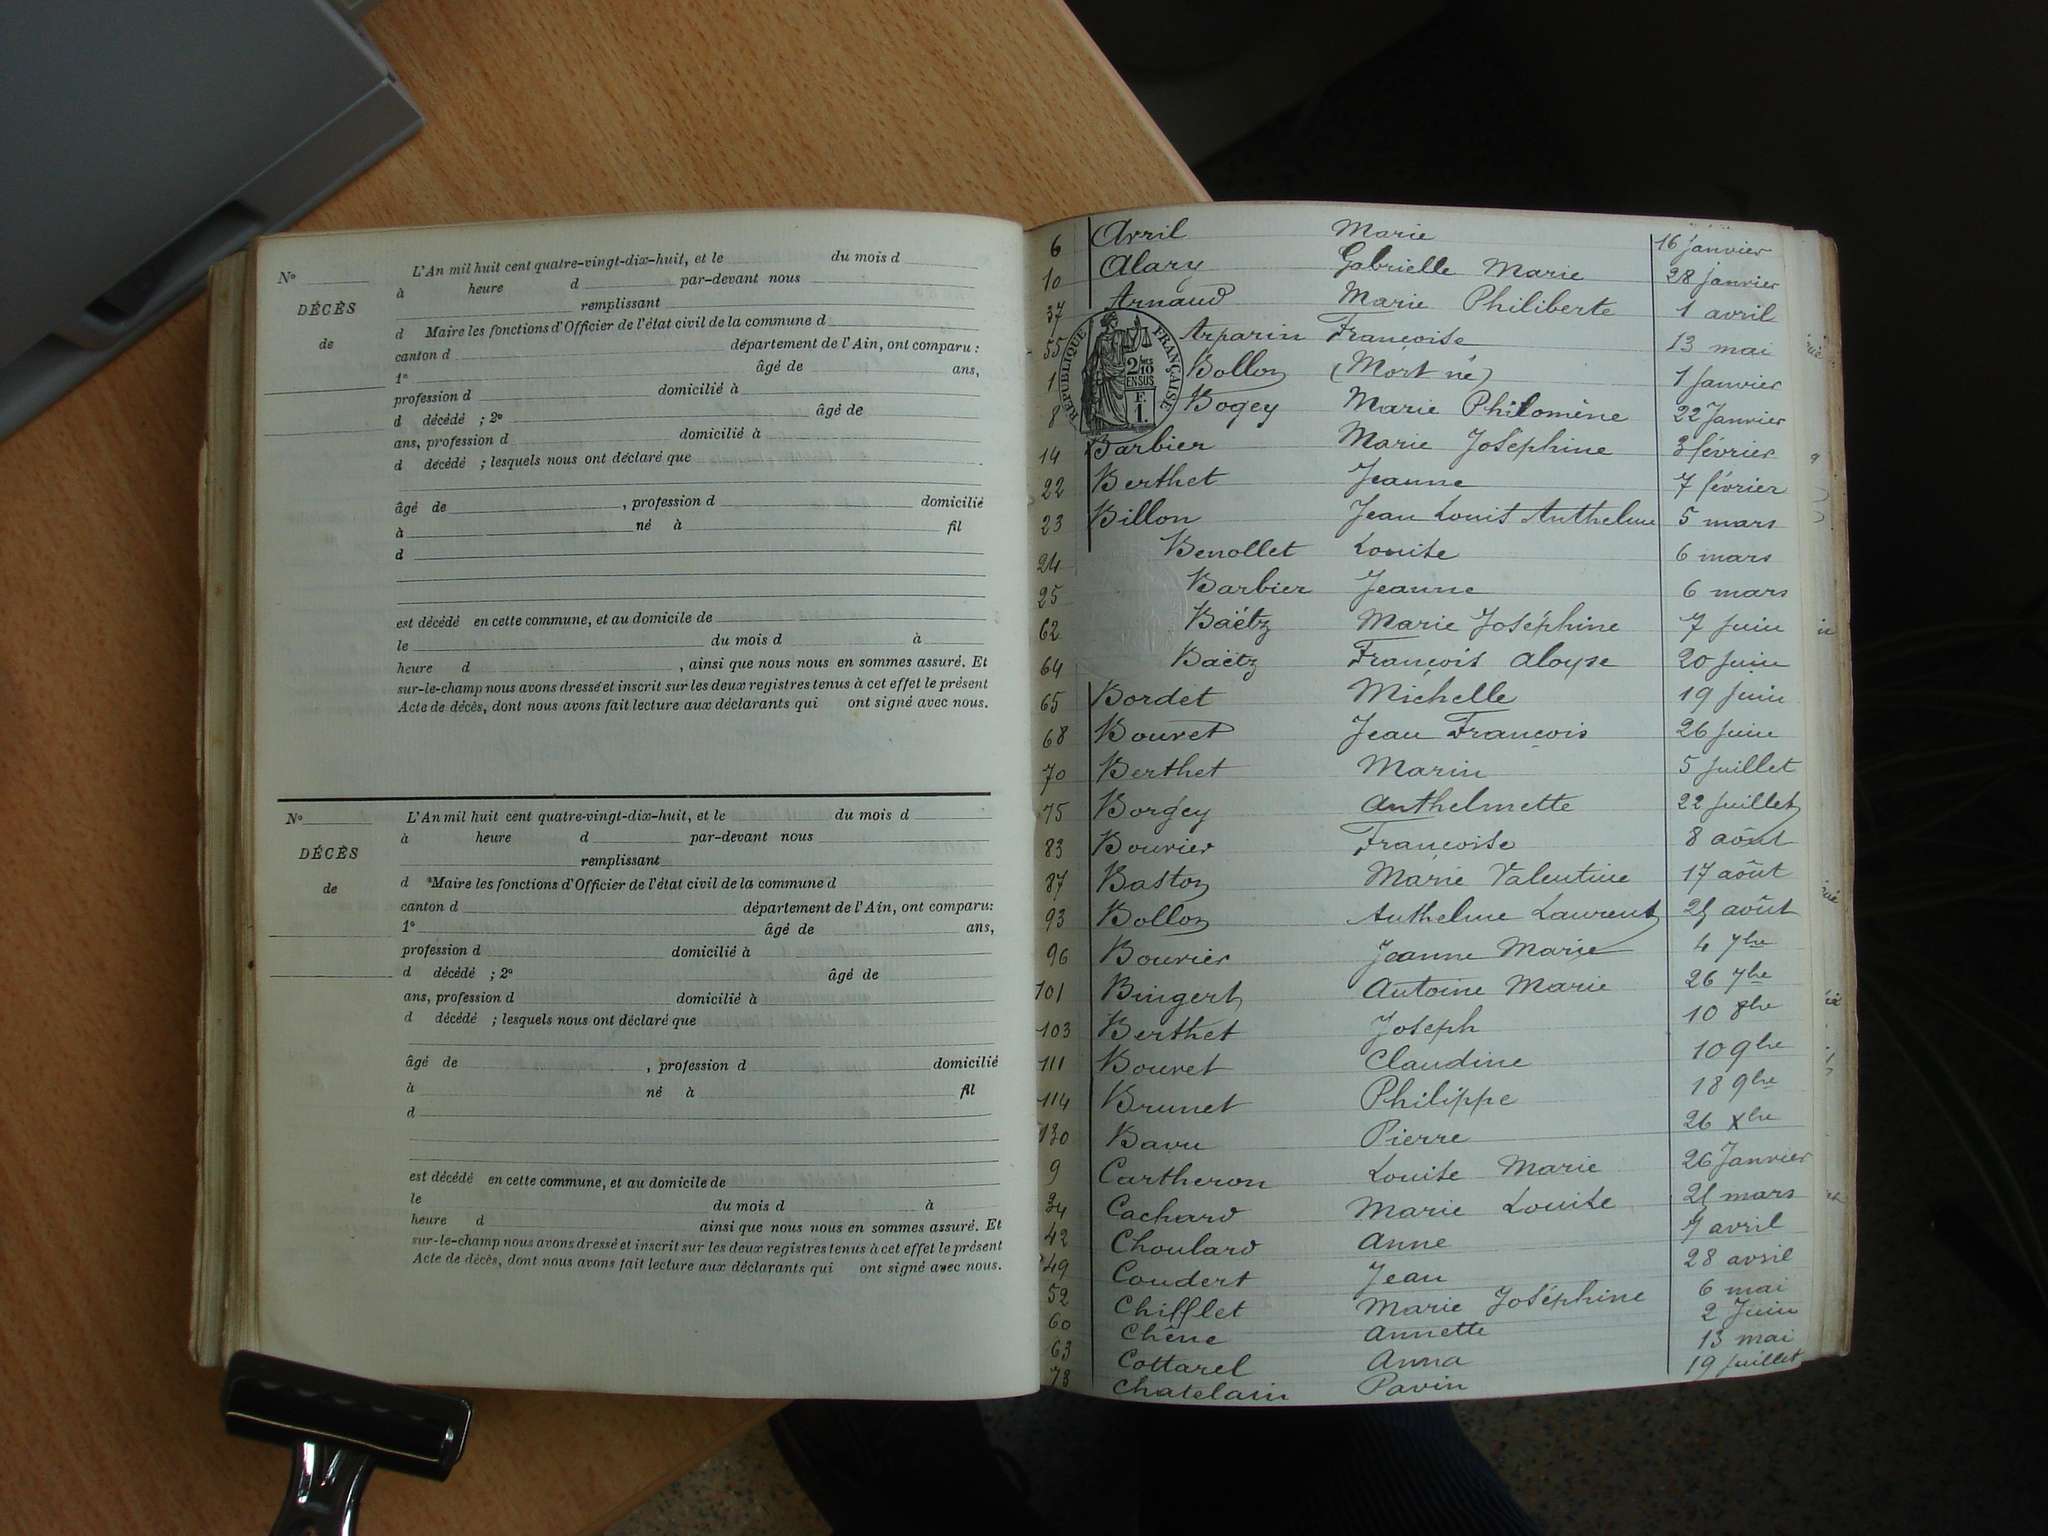 N°
DÉCÈS
de
L'An mil huit cent quatre-vingt-dix-huit, et le du mois d
à heure d par-devant nous
remplissant
d Maire les fonctions d'Officier de l'état civil de la commune d
canton d département de l'Ain, ont comparu :
1° âgé de ans,
profession d domicilié à
d décédé ; 2° âgé de
ans, profession d domicilié à
d décédé ; lesquels nous ont déclaré que
âgé de , profession d domicilié
à né à fil
d
est décédé en cette commune, et au domicile de
le du mois d à
heure d , ainsi que nous nous en sommes assuré. Et
sur-le-champ nous avons dressé et inscrit sur les deux registres tenus à cet effet le présent
Acte de décès, dont nous avons fait lecture aux déclarants qui ont signé avec nous.
N°
DÉCÈS
de
L'An mil huit cent quatre-vingt-dix-huit, et le du mois d
à heure d par-devant nous
remplissant
d Maire les fonctions d'Officier de l'état civil de la commune d
canton d département de l'Ain, ont comparu:
1° âgé de ans,
profession d domicilié à
d décédé ; 2° âgé de
ans, profession d domicilié à
d décédé ; lesquels nous ont déclaré que
âgé de , profession d domicilié
à né à fil
d
est décédé en cette commune, et au domicile de
le du mois d à
heure d ainsi que nous nous en sommes assuré. Et
sur-le-champ nous avons dressé et inscrit sur les deux registres tenus à cet effet le présent
Acte de décès, dont nous avons fait lecture aux déclarants qui ont signé avec nous.
6 Avril Marie 16 janvier
10 Alary Gabrielle Marie 28 janvier
37 Arnaud Marie Philiberte 1 avril
55 Arparin Françoise 13 mai
RÉPUBLIQUE FRANÇAISE
2/10 EN SUS
F. 1
1 Bollon (Mort né) 1 janvier
8 Bogey Marie Philomène 22 Janvier
14 Barbier Marie Joséphine 3 février
22 Berthet Jeanne 7 février
23 Billon Jean Louis Anthelme 5 mars
24 Benollet Louise 6 mars
25 Barbier Jeanne 6 mars
62 Baëtz Marie Joséphine 7 juin
64 Baëtz François Aloyse 20 juin
65 Bordet Michelle 19 juin
68 Bouvet Jean François 26 juin
70 Berthet Marin 5 juillet
75 Borgey Anthelmette 22 juillet
83 Bouvier Françoise 8 août
87 Baston Marie Valentine 17 août
93 Bollon Anthelme Laurent 25 août
96 Bouvier Jeanne Marie 4 7bre
101 Bingert Antoine Marie 26 7bre
103 Berthet Joseph 10 8bre
111 Bouvet Claudine 10 9bre
114 Brunet Philippe 18 9bre
130 Bavu Pierre 26 Xbre
9 Cartheron Louise Marie 26 Janvier
34 Cachard Marie Louise 25 mars
42 Choulard Anne avril
49 Coudert Jean 28 avril
52 Chifflet Marie Joséphine 6 mai
60 Chêne Annette 2 Juin
63 Cottarel Anna 13 mai
78 Chatelain Pavin 19 juillet